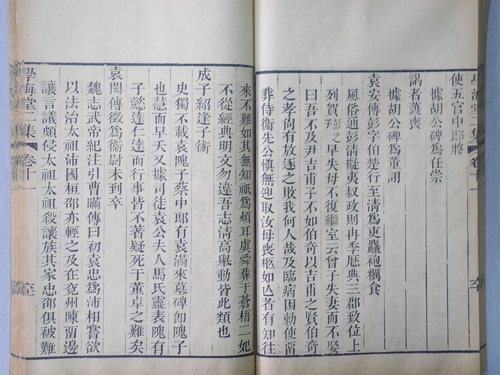 使五官中郎將
據胡公碑爲任崇
訊者護喪
據胡公碑爲董詡
袁安傳彭字伯楚行至清爲吏麤袍糲食
風俗通彭清擬夷叔政則冉季厯典三郡致位上
列賀早失母不復繼室云曾子失妻而不娶
曰吾不及尹吉甫子不如伯奇以吉甫之賢伯奇
之孝尚有放逐之敗我何人哉及臨病困勑使留
葬侍衞先公愼無迎取汝母喪柩如亾者有知往
來不難如其無知祇爲煩耳虞舜葬于蒼梧二妃
不從經典明文勿違吾志清高舉動皆此類也
成子紹逢子術
史獨不載袁隗子蔡中郎有袁滿來墓碑卽隗子
也慧而早夭又據司徒袁公夫人馬氏靈表隗有
子懿達仁達而行事皆不著疑死于董卓之難矣
袁閎傳徵爲衞尉未到卒
魏志武帝紀注引曹瞞傳曰初袁忠爲沛相嘗欲
以法治太祖沛國桓邵亦輕之及在兗州陳留邊
讓言議頗侵太祖太祖殺讓族其家忠邵俱避難
學海堂二集 卷十一